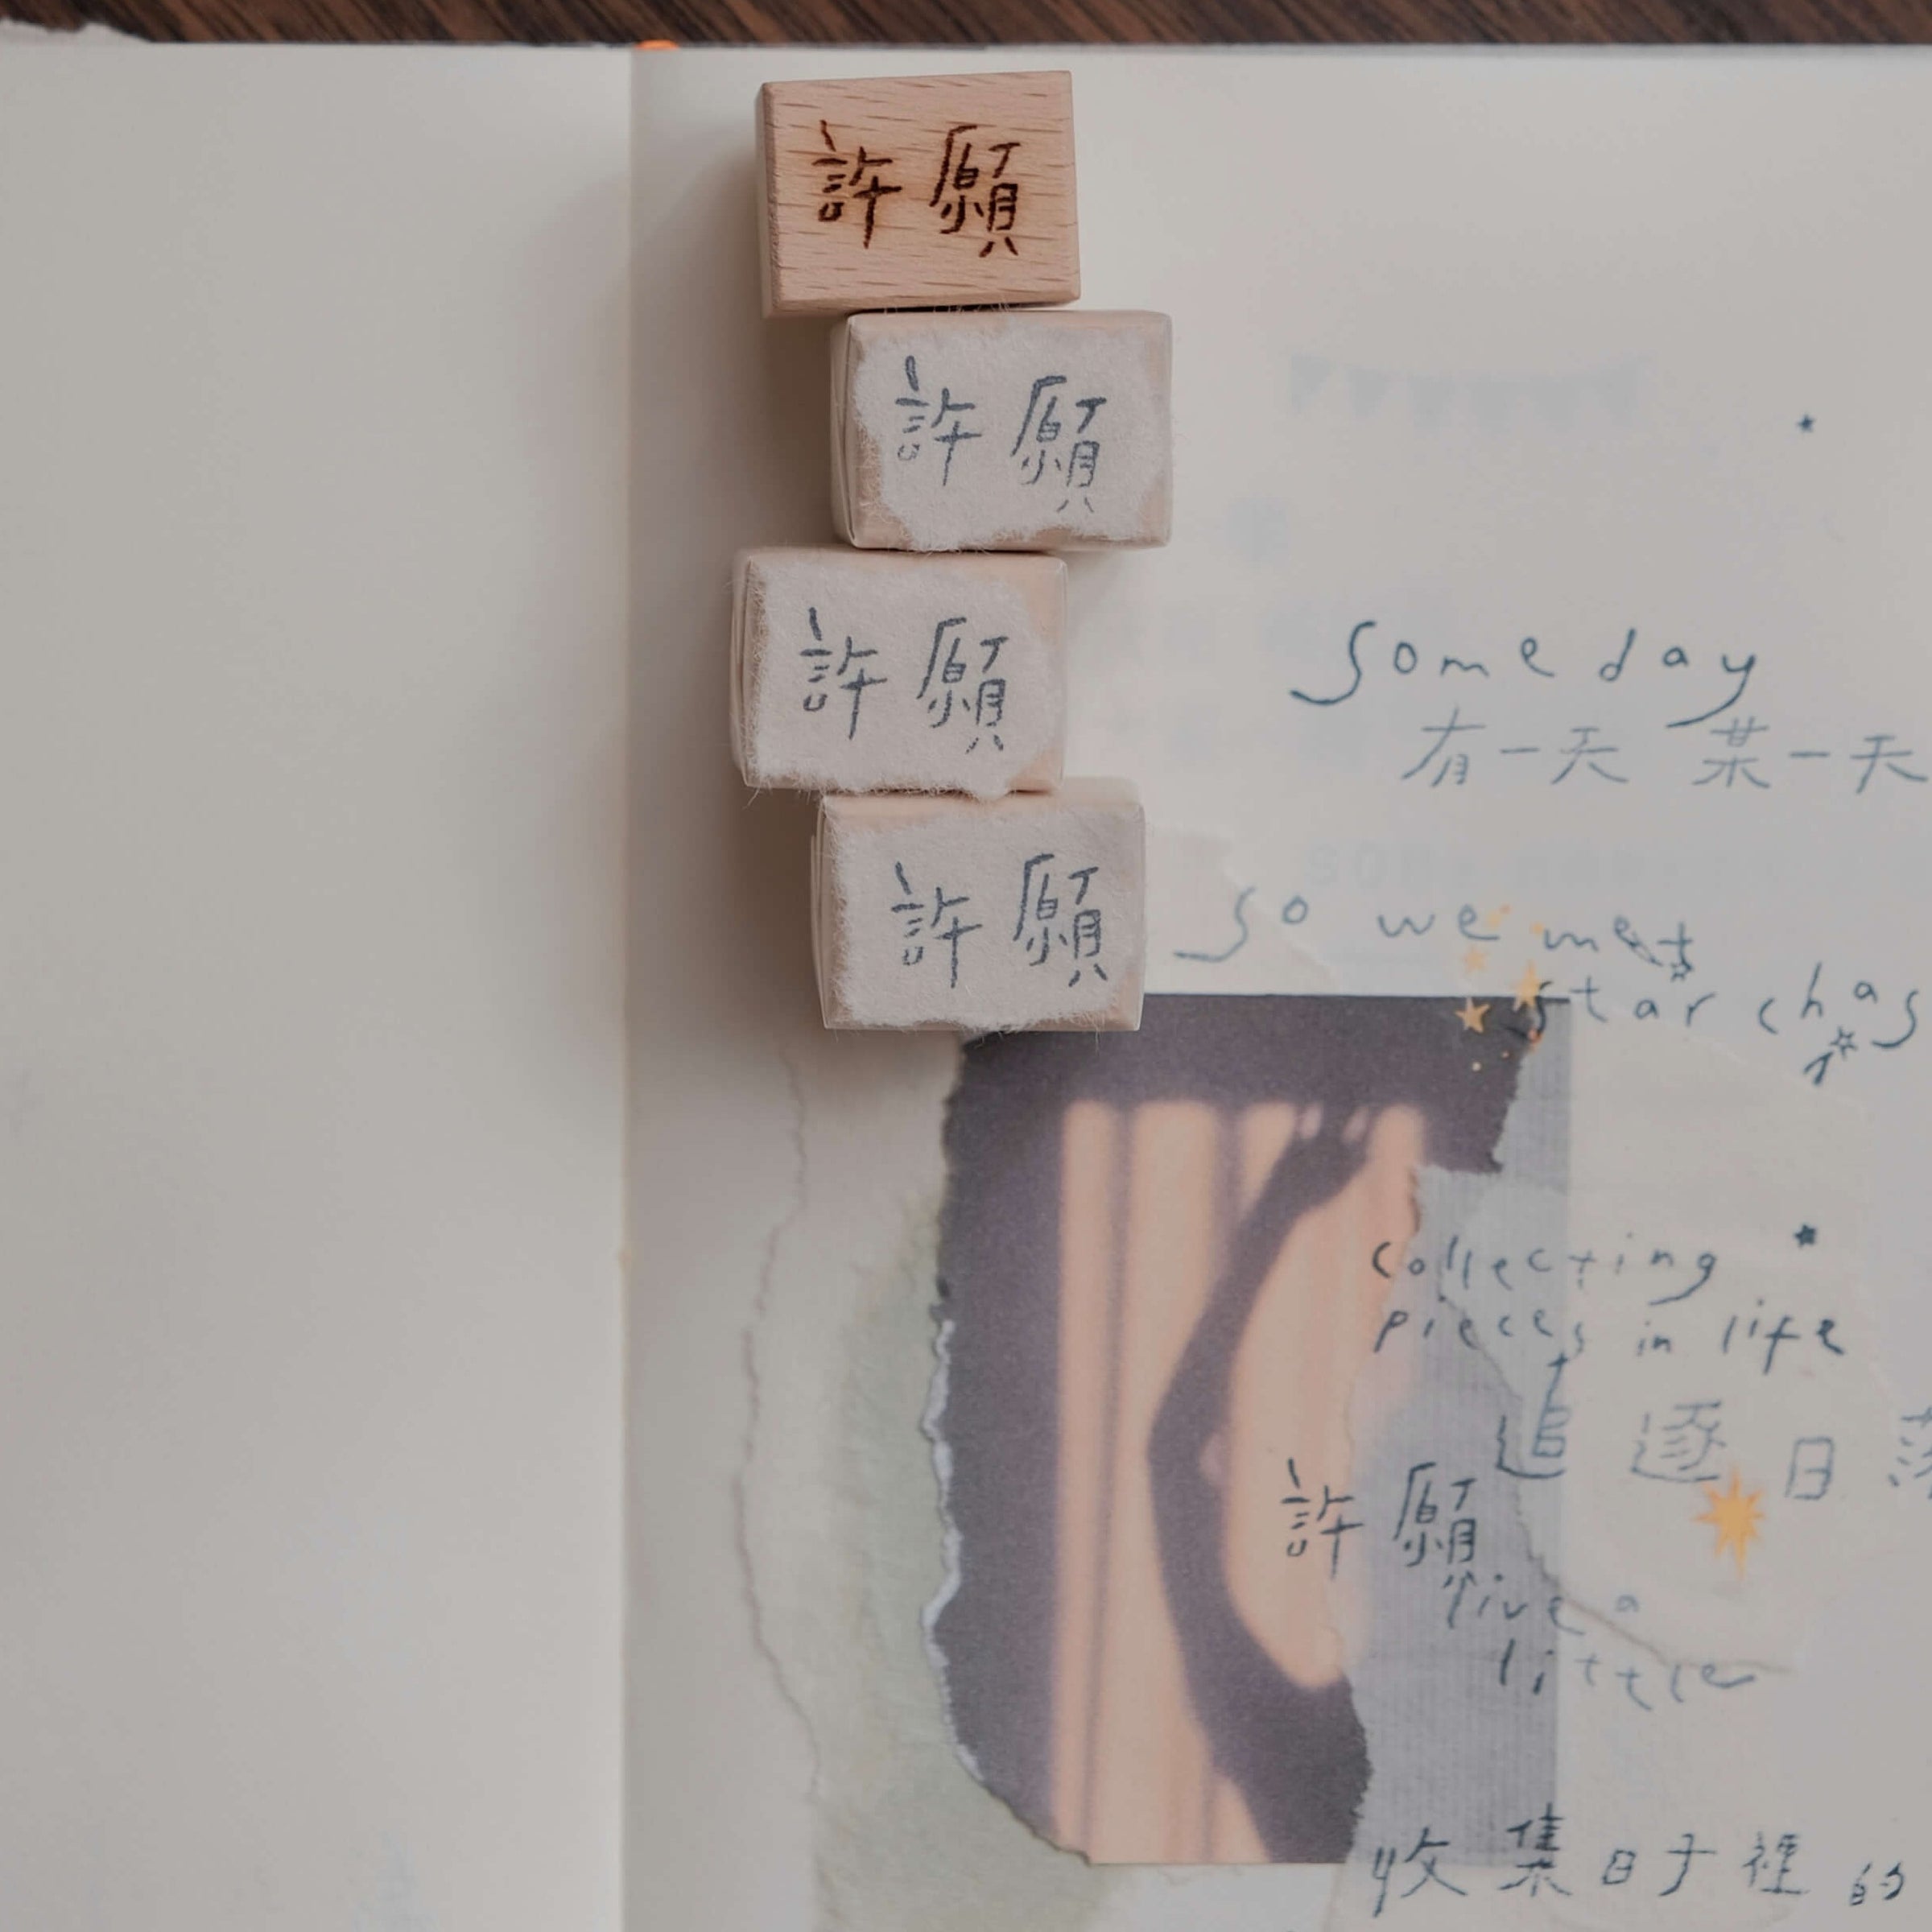 許願
許願
許願
許願
someday
有一天 某一天
so we met
star chas
collecting
pieces in life
追逐日
許願
live a
little
收集日子裡的